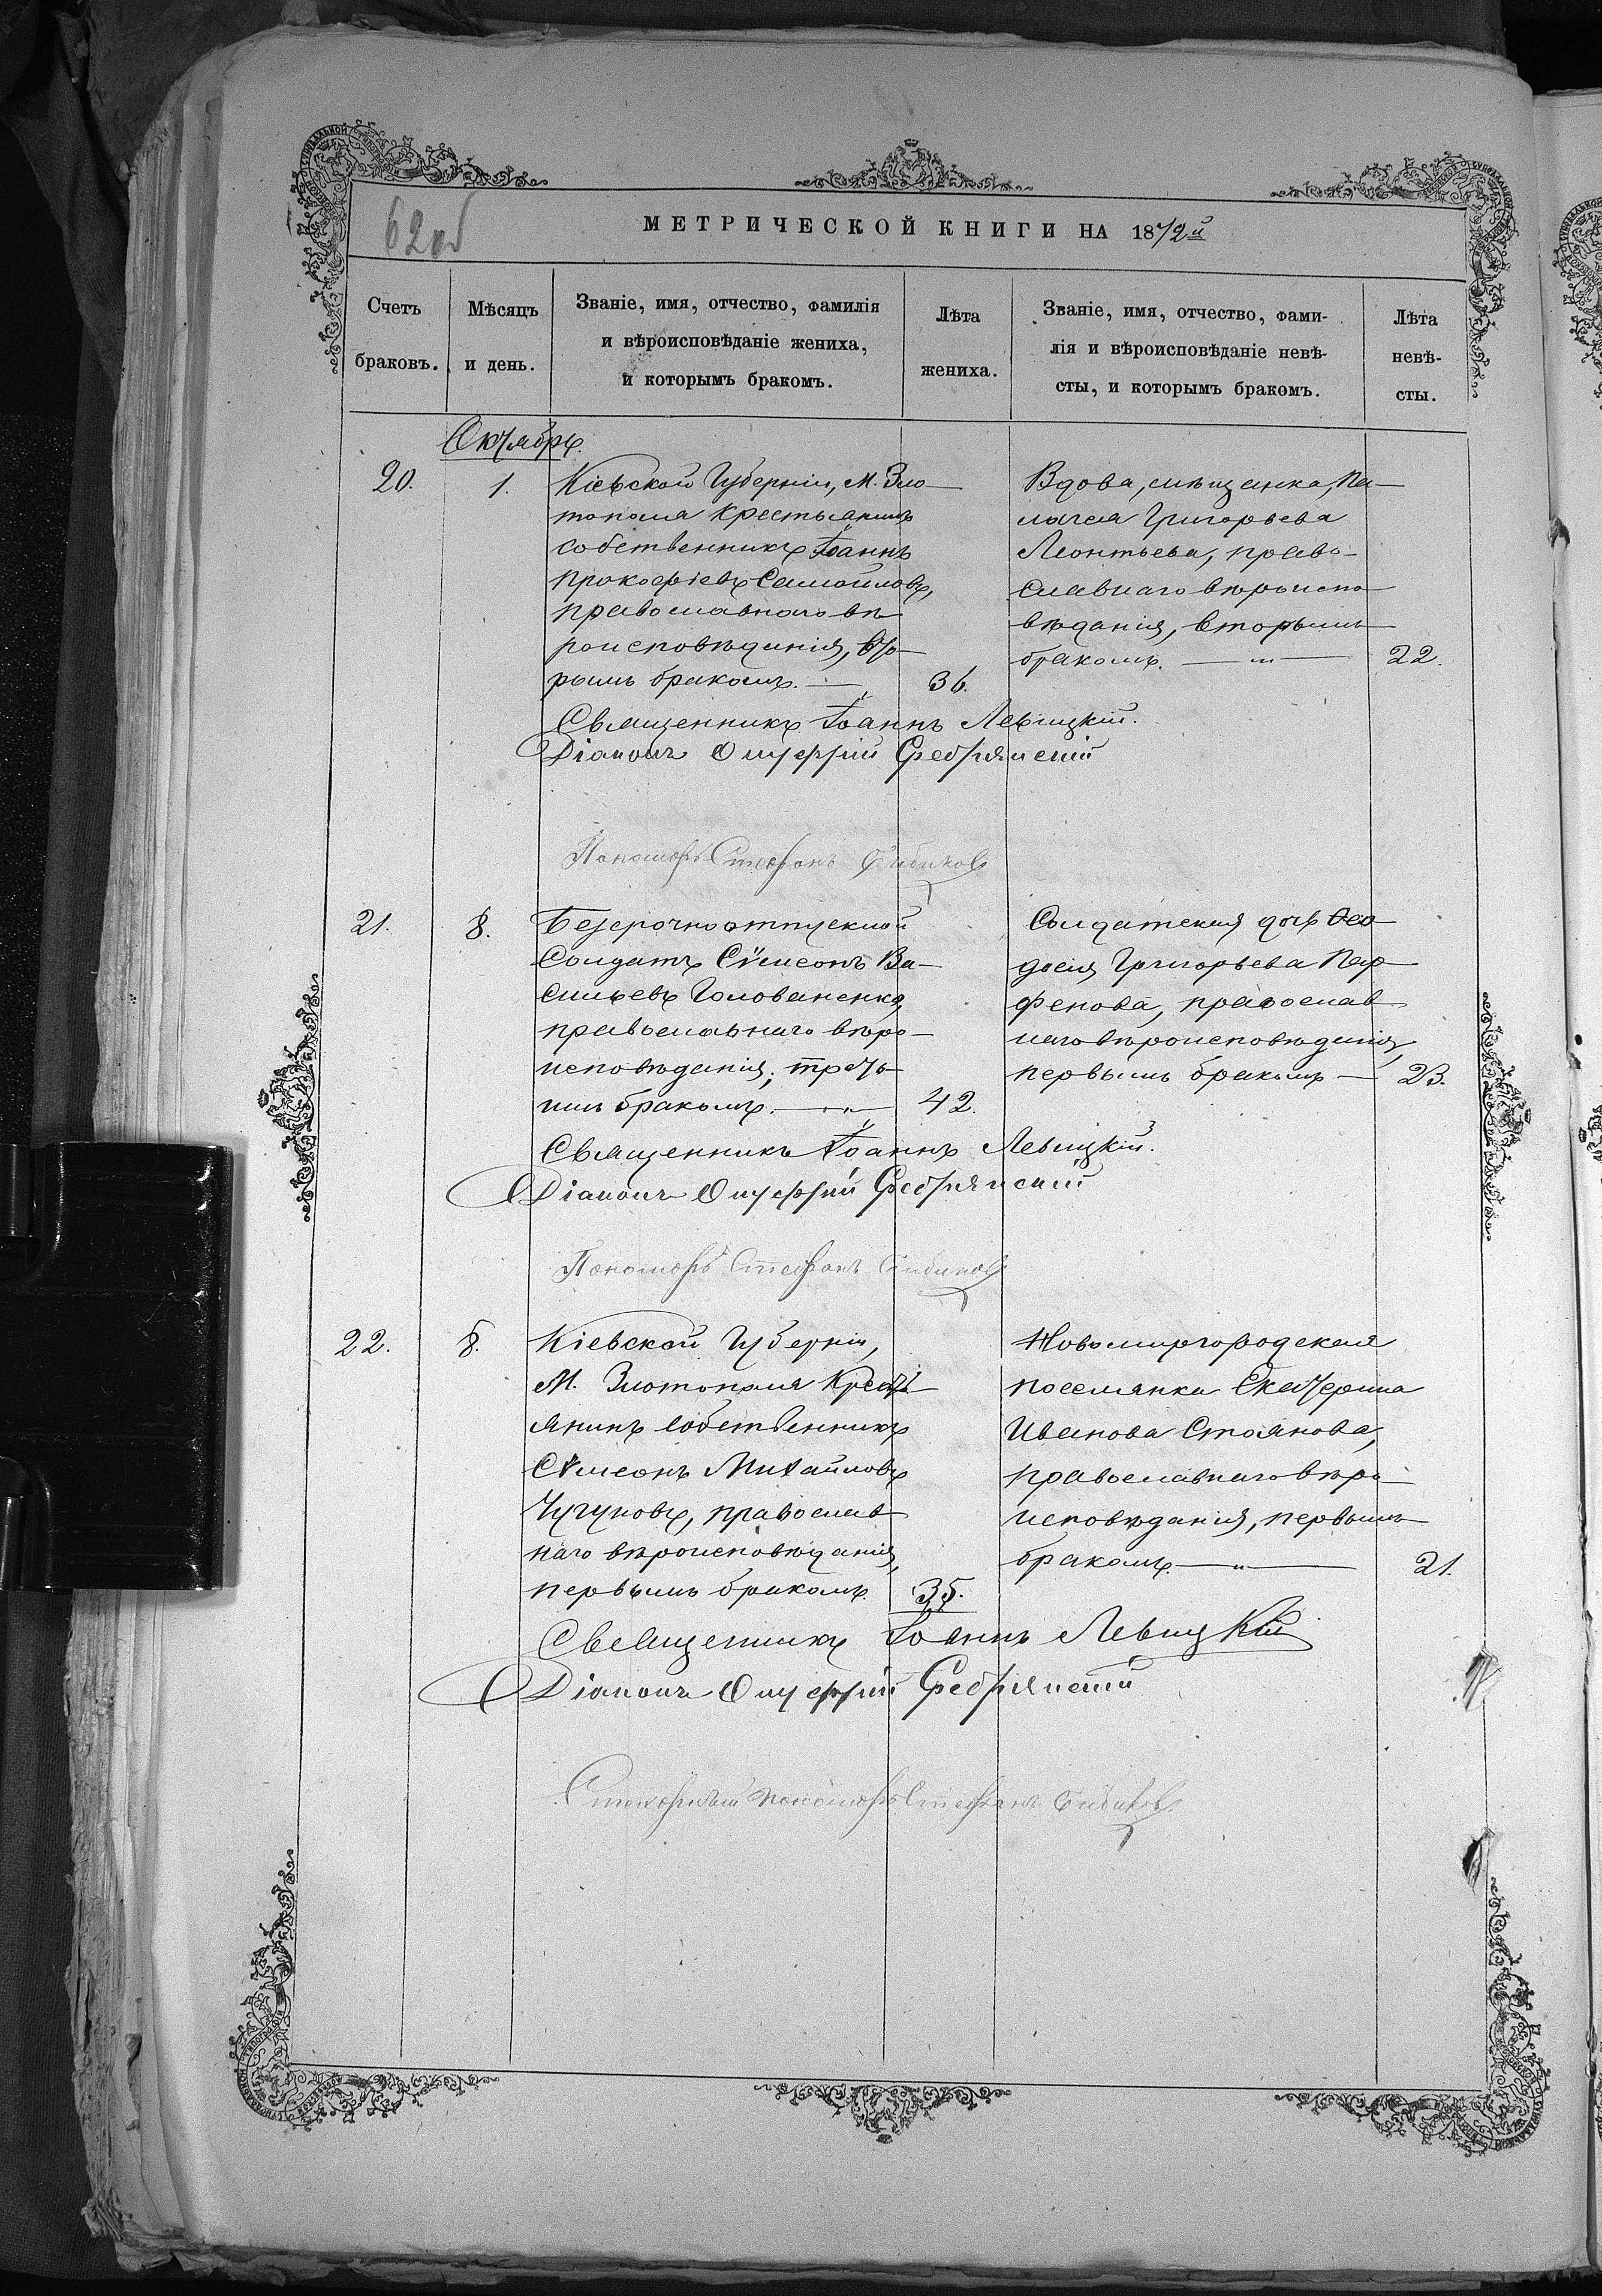 62 об
МЕТРИЧЕСКОЙ КНИГИ НА 1872й
Счетъ браковъ.
Мѣсяцъ и день.
Званіе, имя, отчество, фамилія
и вѣроисповѣданіе жениха,
и которымъ бракомъ.
Лѣта жениха.
Званіе, имя, отчество, фами-
лія и вѣроисповѣданіе невѣ-
сты, и которымъ бракомъ.
Лѣта невѣ-
сты.
Октябрь.
20.
1.
Кіевской Губерніи, М. Зло-
тополя крестьянинъ
собственникъ Іоаннъ
Прокофіевъ Самойловъ,
православнаго вѣ-
роисповѣданія, вто-
рымъ бракомъ. —
36.
Вдова, мѣщанка, Пе-
лагея Григорьева
Леонтьева, право-
славнаго вѣроиспо-
вѣданія, вторымъ
бракомъ. —
22.
Священникъ Іоаннъ Левицкій.
Діаконъ Онуфрій Сребрянскій
Пономарь Стефанъ Бибиковъ
21.
8.
Безсрочноотпускной
Солдатъ Сѵмеонъ Ва-
сильевъ Голованенко,
православнаго вѣро-
исповѣданія, треть-
имъ бракомъ. —
42.
Солдатская дочь Ѳео-
досія Григорьева Пар-
фенова, православ-
наго вѣроисповѣданія,
первымъ бракомъ —
23.
Священникъ Іоаннъ Левицкій.
Діаконъ Онуфрій Сребрянскій
Пономарь Стефанъ Бибиковъ
22.
8.
Кіевской Губерніи,
М. Злотополя Кресть-
янинъ собственникъ
Сѵмеонъ Михайловъ
Чугуновъ, православ-
наго вѣроисповѣданія,
первымъ бракомъ.
35.
Новомиргородская
поселянка Екатерина
Иванова Стоянова,
православнаго вѣро-
исповѣданія, первымъ
бракомъ. —
21.
Священникъ Іоаннъ Левицкій
Діаконъ Онуфрій Сребрянскій
пономарь Стефанъ Бибиковъ